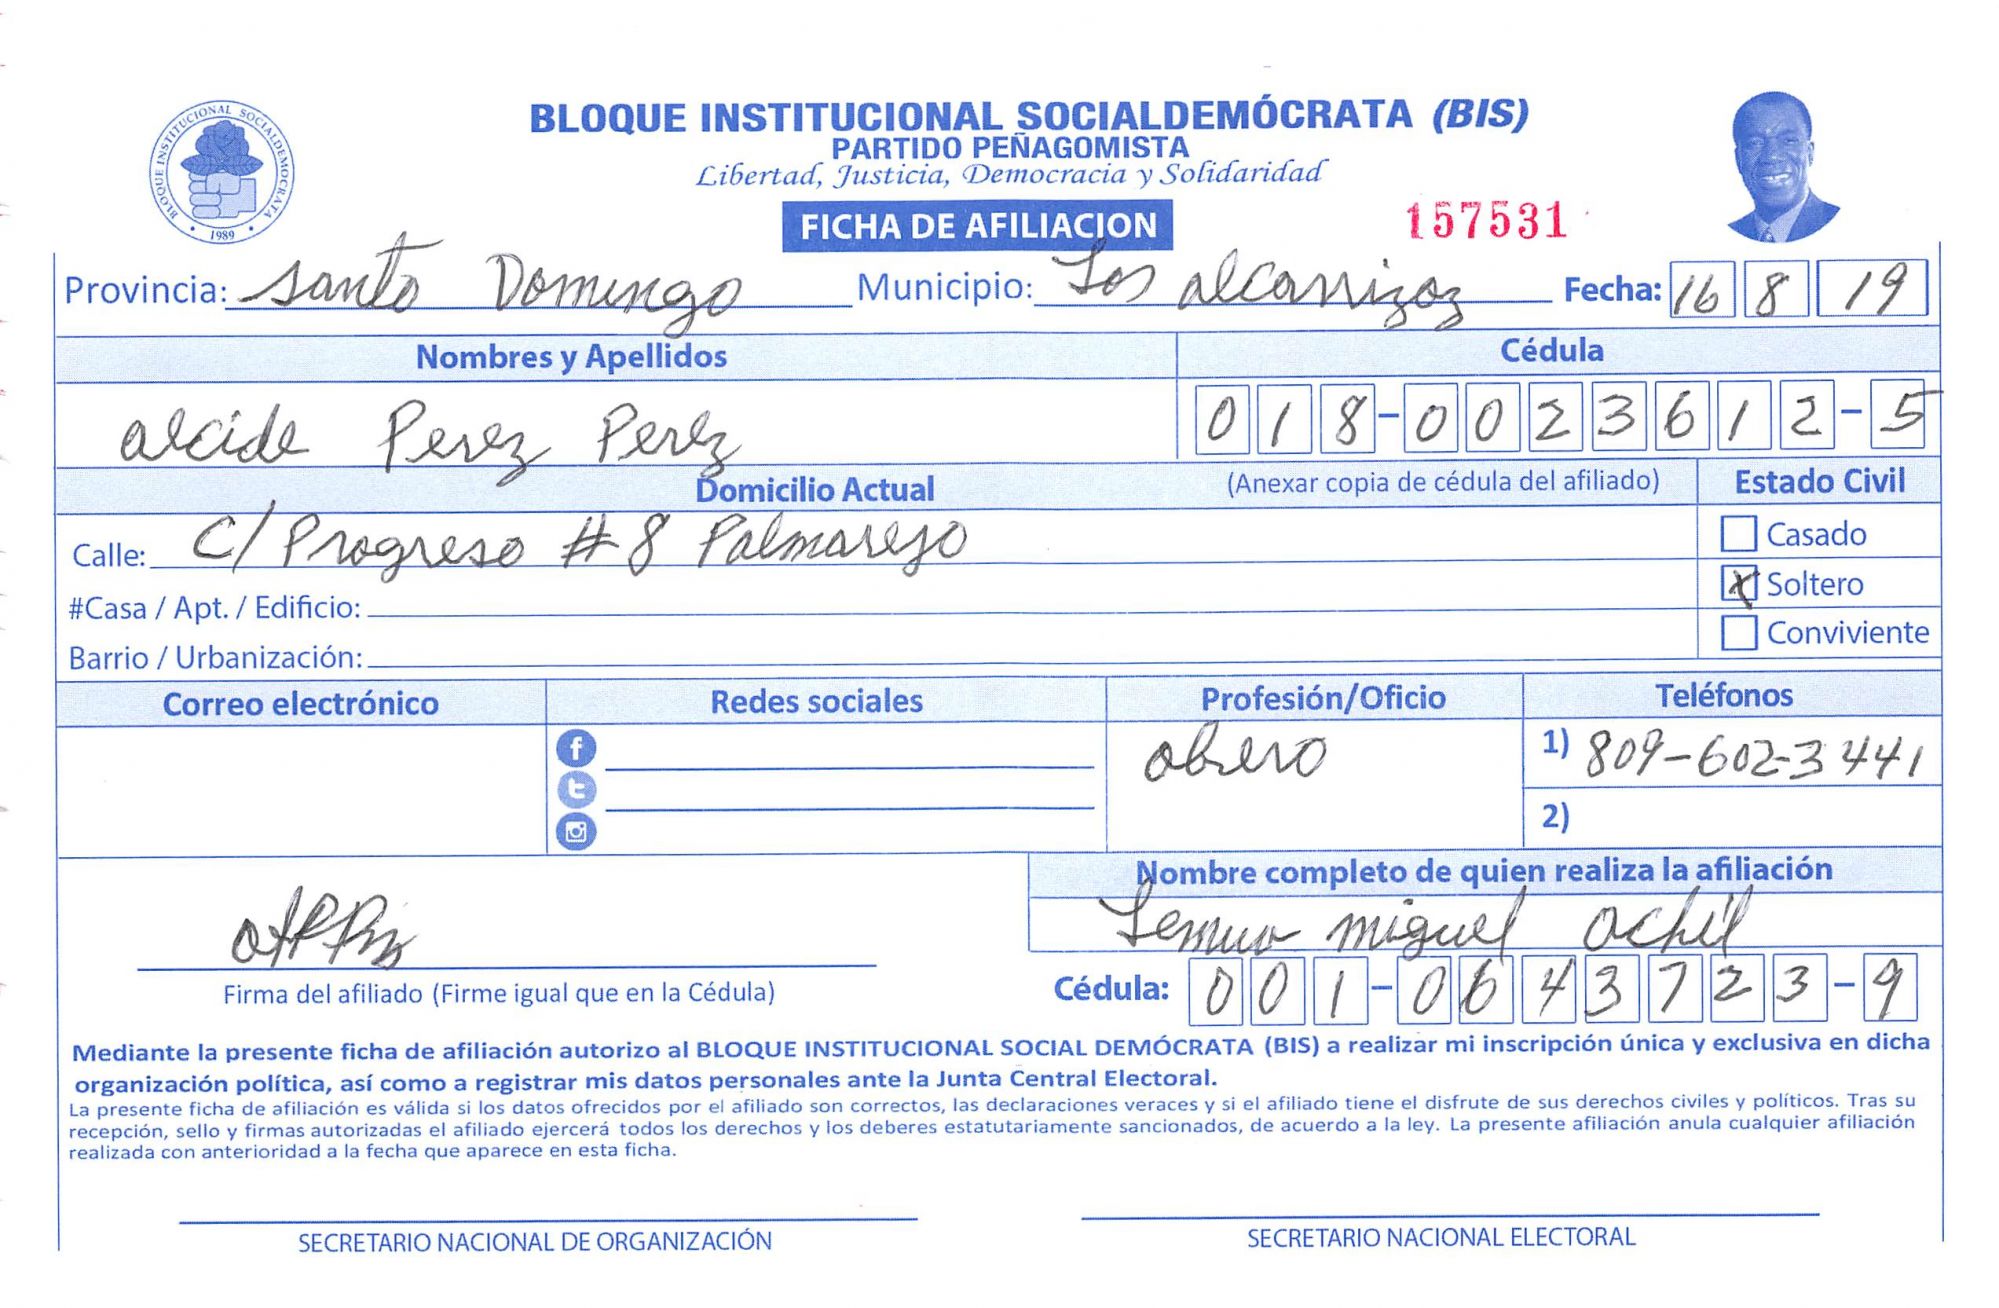 BLOQUE INSTITUCIONAL SOCIALDEMOCRATA
1989
BLOQUE INSTITUCIONAL SOCIALDEMÓCRATA (BIS)
PARTIDO PEÑAGOMISTA
Libertad, Justicia, Democracia y Solidaridad
FICHA DE AFILIACION
157531
Provincia: Santo Domingo Municipio: Los alcarrizoz Fecha: 16 8 19
Nombres y Apellidos Cédula
alcide Perez Perez 018-0023612-5
Domicilio Actual (Anexar copia de cédula del afiliado) Estado Civil
Calle: C/ Progreso #8 Palmarejo
Casado
X Soltero
#Casa / Apt. / Edificio:
Conviviente
Barrio / Urbanización:
Correo electrónico Redes sociales Profesión/Oficio Teléfonos
obrero 1) 809-602-3441
2)
Nombre completo de quien realiza la afiliación
miguel
Firma del afiliado (Firme igual que en la Cédula) Cédula: 001-0643723-9
Mediante la presente ficha de afiliación autorizo al BLOQUE INSTITUCIONAL SOCIAL DEMÓCRATA (BIS) a realizar mi inscripción única y exclusiva en dicha
organización política, así como a registrar mis datos personales ante la Junta Central Electoral.
La presente ficha de afiliación es válida si los datos ofrecidos por el afiliado son correctos, las declaraciones veraces y si el afiliado tiene el disfrute de sus derechos civiles y políticos. Tras su
recepción, sello y firmas autorizadas el afiliado ejercerá todos los derechos y los deberes estatutariamente sancionados, de acuerdo a la ley. La presente afiliación anula cualquier afiliación
realizada con anterioridad a la fecha que aparece en esta ficha.
SECRETARIO NACIONAL DE ORGANIZACIÓN SECRETARIO NACIONAL ELECTORAL